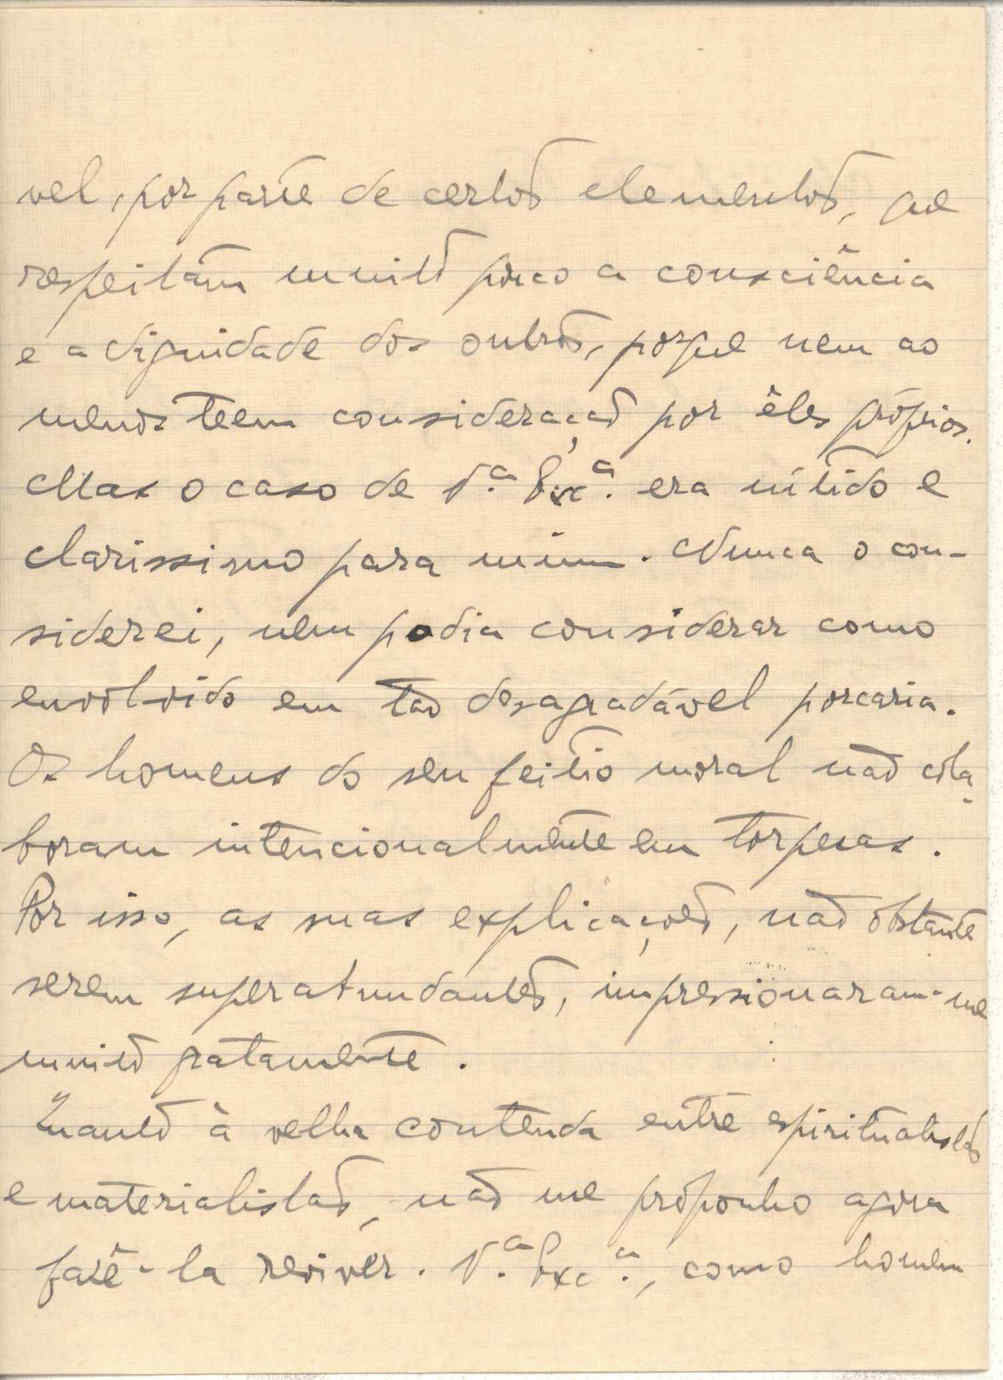 vel, por parte de certos elementos, que
respeitam muito pouco a consciência
e a dignidade dos outros, porque nem ao
menos teem consideração por êles próprios.
Mas o caso de V.ª Exc.ª era nítido e
clarissimo para mim. Nunca o con-
siderei, nem podia considerar como
envolvido em tão desagradável porcaria.
Os homens do seu feitio moral não cola-
boram intencionalmente em torpezas.
Por isso, as suas explicações, não obstante
serem superabundantes, impressionaram-me
muito gratamente.
Quanto à velha contenda entre espiritualistas
e materialistas, não me proponho agora
fazê-la reviver. V.ª Exc.ª, como homem